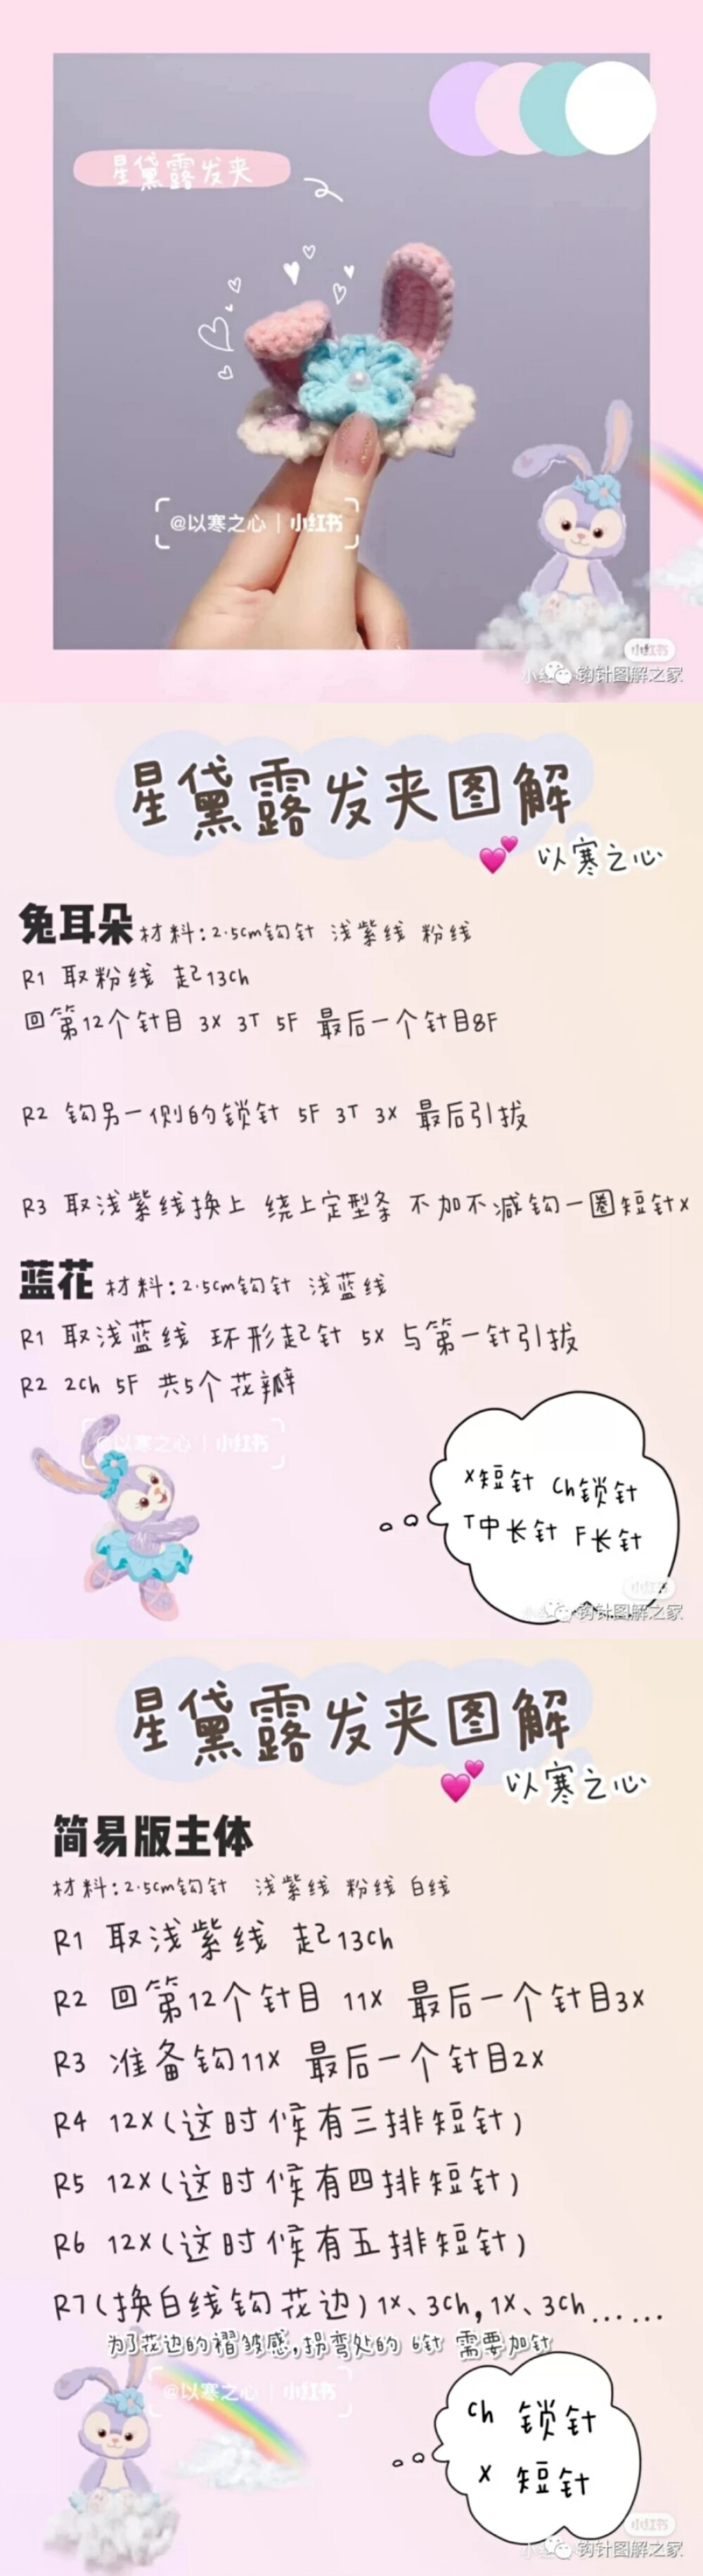 星黛露发夹
@以寒之心 | 小红书
小红书
钩针图解之家
星黛露发夹图解
以寒之心
兔耳朵 材料:2.5cm钩针 浅紫线 粉线
R1 取粉线 起13ch
回第12个针目 3X 3T 5F 最后一个针目8F
R2 钩另一侧的锁针 5F 3T 3X 最后引拔
R3 取浅紫线换上 绕上定型条 不加不减钩一圈短针X
蓝花 材料:2.5cm钩针 浅蓝线
R1 取浅蓝线 环形起针 5X 与第一针引拔
R2 2Ch 5F 共5个花瓣
@以寒之心 | 小红书
X短针 Ch锁针
T中长针 F长针
小红书
钩针图解之家
星黛露发夹图解
以寒之心
简易版主体
材料:2.5cm钩针 浅紫线 粉线 白线
R1 取浅紫线 起13Ch
R2 回第12个针目 11X 最后一个针目3X
R3 准备钩11X 最后一个针目2X
R4 12X(这时候有三排短针)
R5 12X(这时候有四排短针)
R6 12X(这时候有五排短针)
R7(换白线钩花边)1X、3Ch,1X、3Ch......
为了花边的褶皱感,拐弯处的 6针 需要加针
@以寒之心 | 小红书
Ch 锁针
X 短针
小红书
钩针图解之家